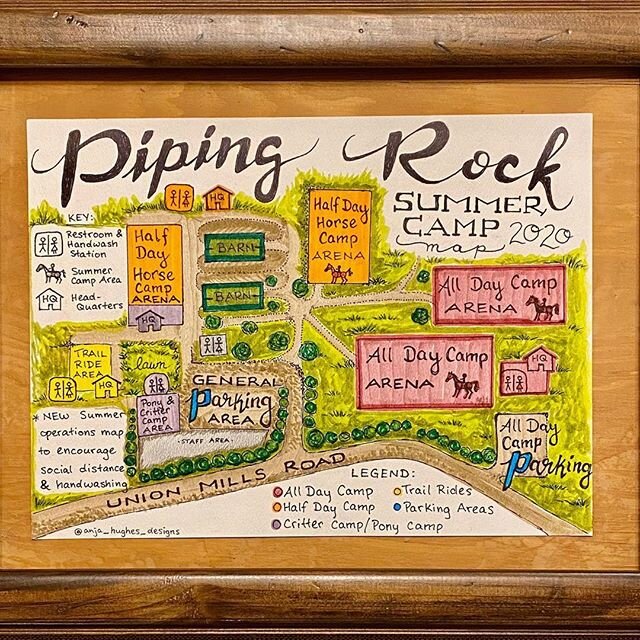 Piping Rock
SUMMER
CAMP
map 2020
KEY:
Restroom &
Handwash
Station
Summer
Camp Area
Head-
Quarters
HQ
HQ
Half
Day
Horse
Camp
ARENA
HQ
BARN
BARN
Half Day
Horse
Camp
ARENA
All Day Camp
ARENA
All Day Camp
ARENA
HQ
TRAIL
RIDE
AREA
HQ
lawn
Pony &
Critter
CAMP
AREA
GENERAL
Parking
AREA
-STAFF AREA-
All Day
Camp
Parking
* NEW Summer
operations map
to encourage
social distance
& handwashing
UNION MILLS ROAD
LEGEND:
All Day Camp
Half Day Camp
Critter Camp/Pony Camp
Trail Rides
Parking Areas
@anja_hughes_designs